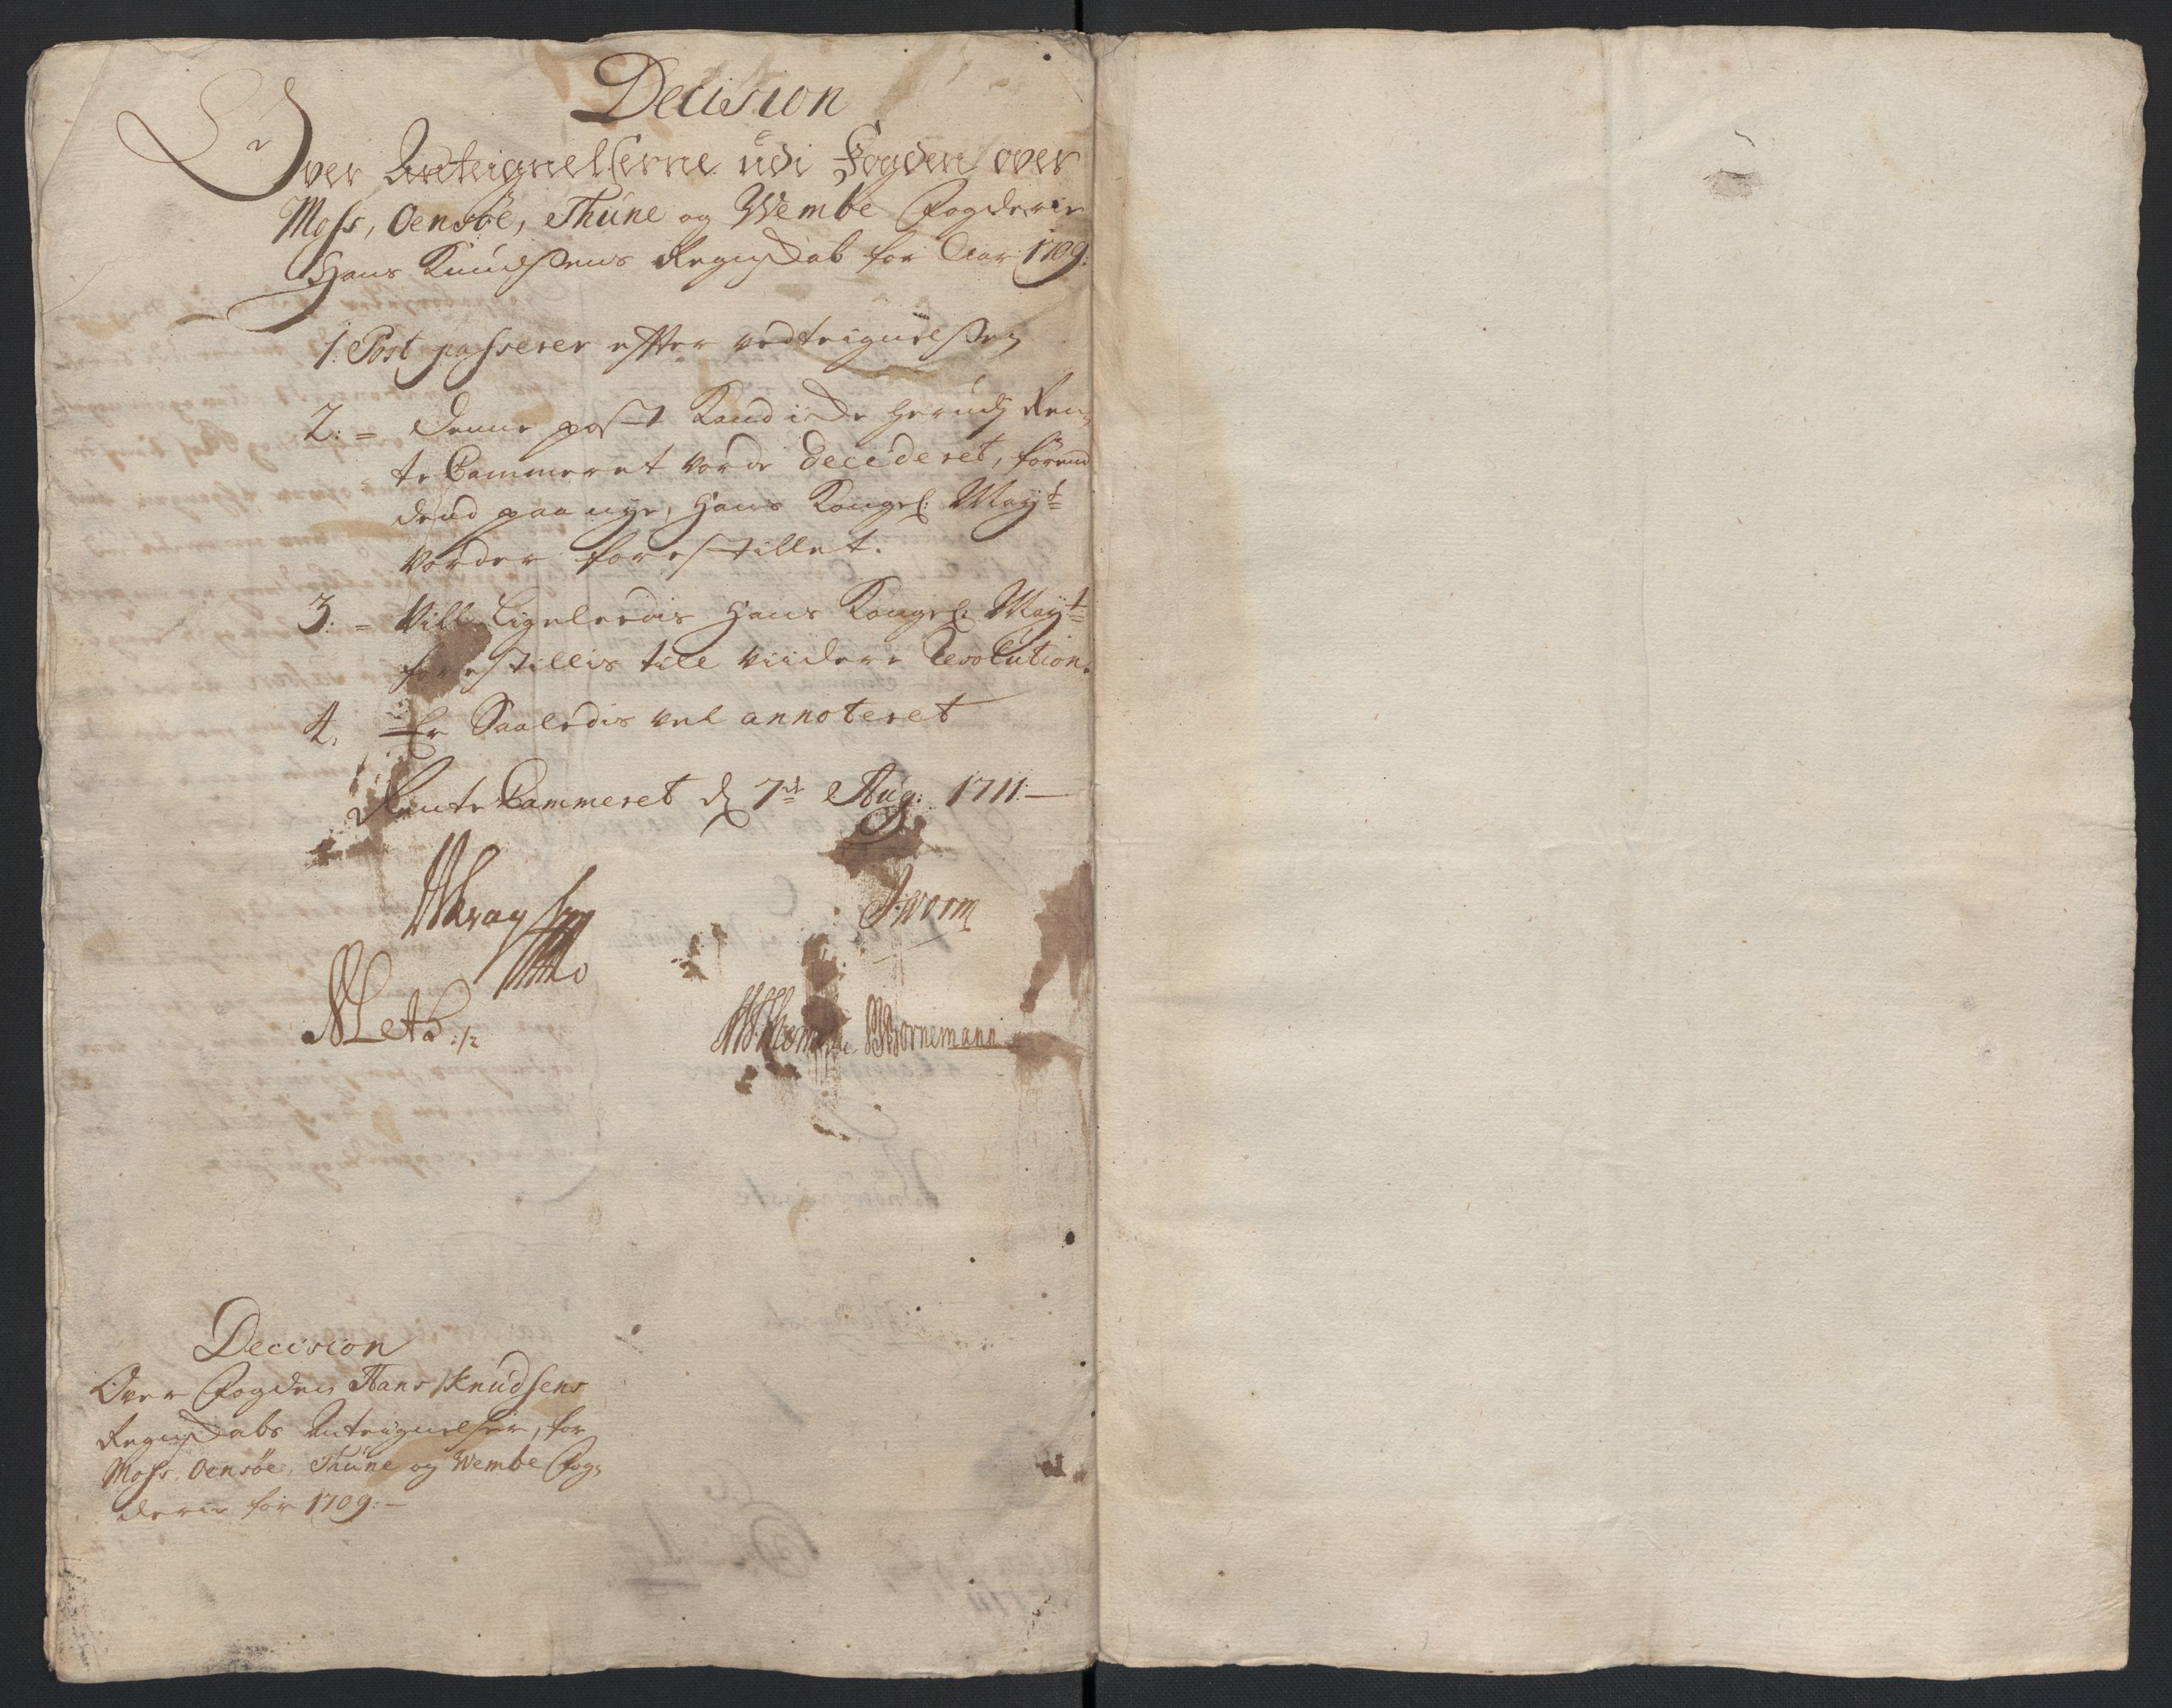 Decision
Over Anteignelserne udi Fogden over
Moss, Oensöe, Thüne og Wembe Fogderie
Hans Knudssens Regnskab for Aar 1709:
1. Post passerer effter vedteignelsen
2: = Denne post Kand icke herudj Ren=
te Cammeret vorde decideret, förend
dend paa nye, Hans Kongel: Mayt=
vorder forestillet.
3: = Will Ligeledis Hans Kongel: Mayt=
forestillis till viidere Resolution.
4. Er Saaledis vel annoteret
Rente Cammeret d 7de Aug: 1711.—
J: Worm
Bornemann
Decision
Over Fogden Hans Knudsens
Regnskabs Anteignelser, for
Moss, Oensöe, Thüne og Wembe Fog=
derie for 1709:—